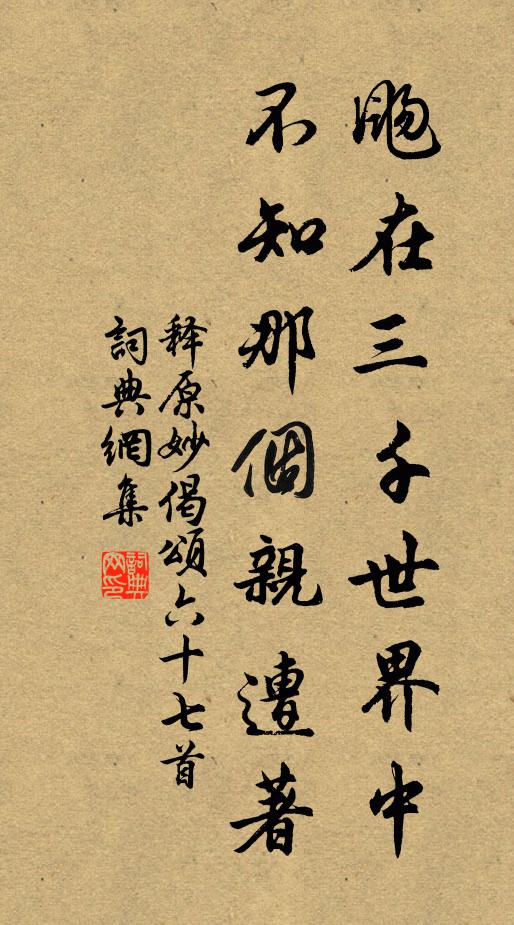 飏在三千世界中
不知那個親遭著
释原妙偈頌六十七首
詞典網集
詞典网印